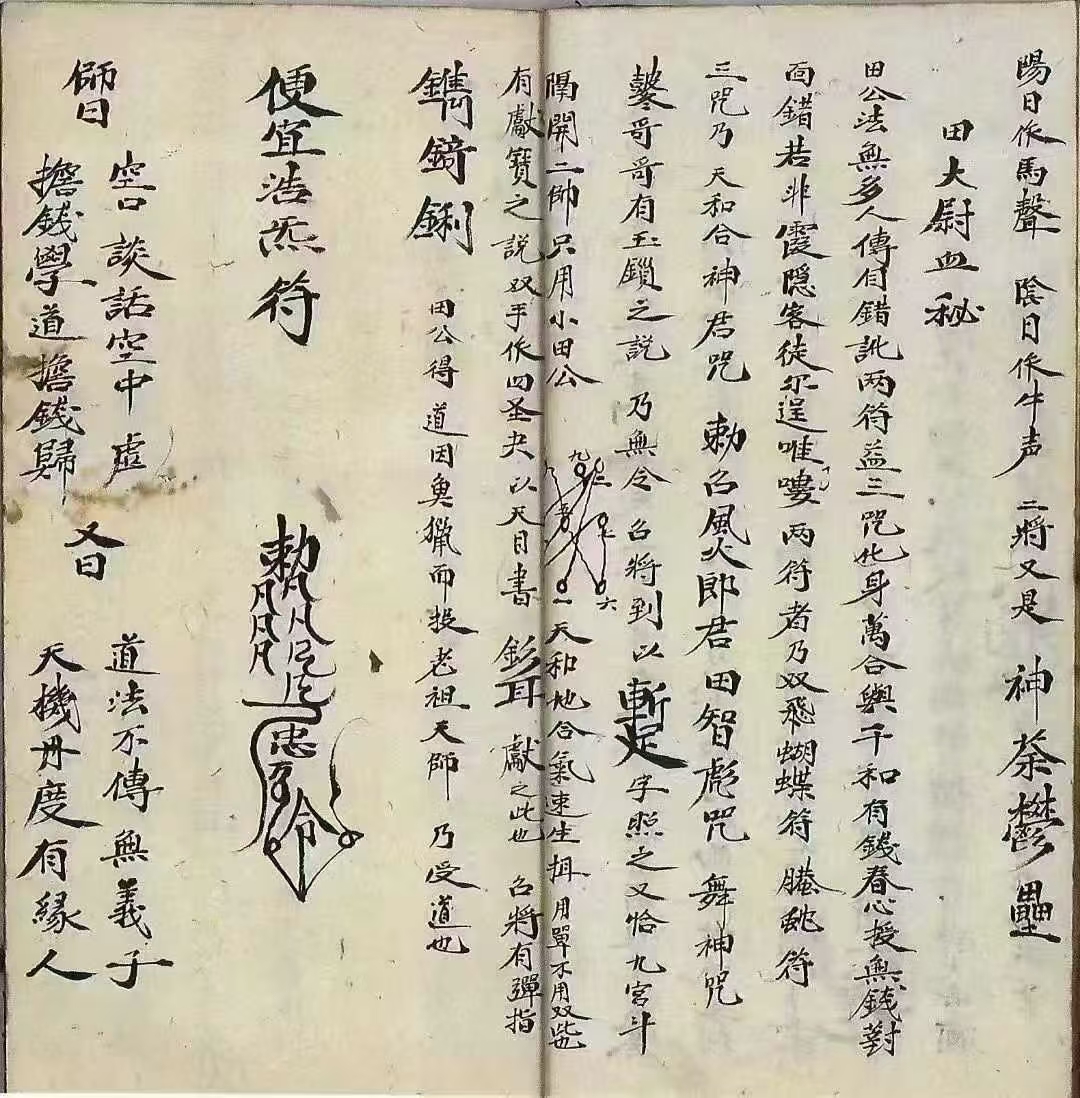 陽日作馬聲 陰日作牛声 二將又是 神荼鬱壘
田大尉血秘
田公法無多人傳自錯訛两符益三咒化身萬合與千和有錢春心授無錢對
面錯若非霞隱客徒尔逞唯嘍两符者乃双飛蝴蝶符 符
三咒乃 天和合神君咒 勅召風火郎君田智彪咒 舞神咒
哥哥有玉鎖之説 乃無令 召將到以 字照之又恰九宮斗
隔開二帥只用小田公
九 一 六
天和地合氣速生 用單不用双此也
有獻寶之説双手作四圣夬以天目書 獻之此也 召將有彈指
鐫錡鋓 田公得道因魚獵而投老祖天師 乃受道也
便宜浩炁符
勅 忠 令
師曰
空口談話空中虛
擔錢學道擔錢歸
又曰
道法不傳無義子
天機丹度有緣人